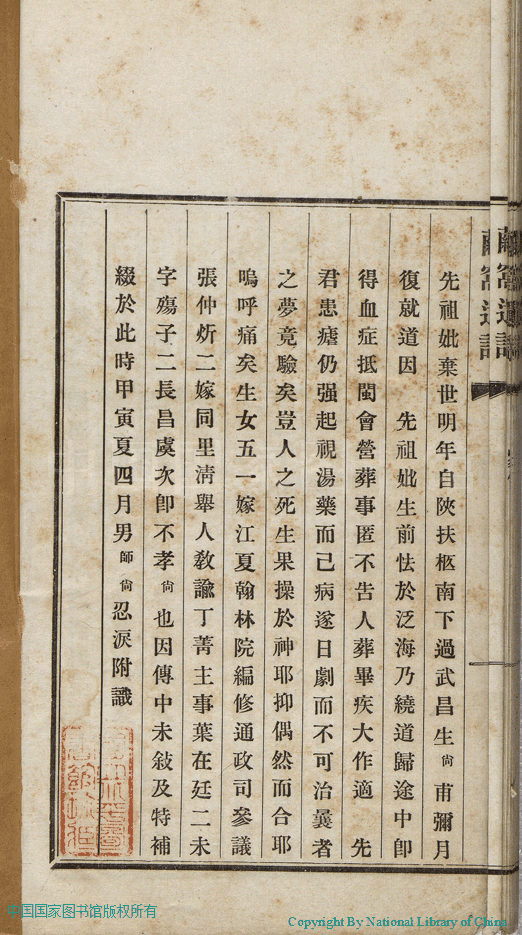 先祖妣棄世明年自陝扶柩南下過武昌生尙甫彌月
復就道因　先祖妣生前怯於泛海乃繞道歸途中卽
得血症抵閩會營葬事匿不告人葬畢疾大作適　先
君患瘧仍强起視湯藥而己病遂日劇而不可治曩者
之夢竟驗矣豈人之死生果操於神耶抑偶然而合耶
嗚呼痛矣生女五一嫁江夏翰林院編修通政司參議
張仲炘二嫁同里淸舉人敎諭丁菁主事葉在廷二未
字殤子二長昌虞次卽不孝尙也因傳中未敍及特補
綴於此時甲寅夏四月男師尙忍淚附識
中国国家图书馆版权所有
Copyright By National Library of China